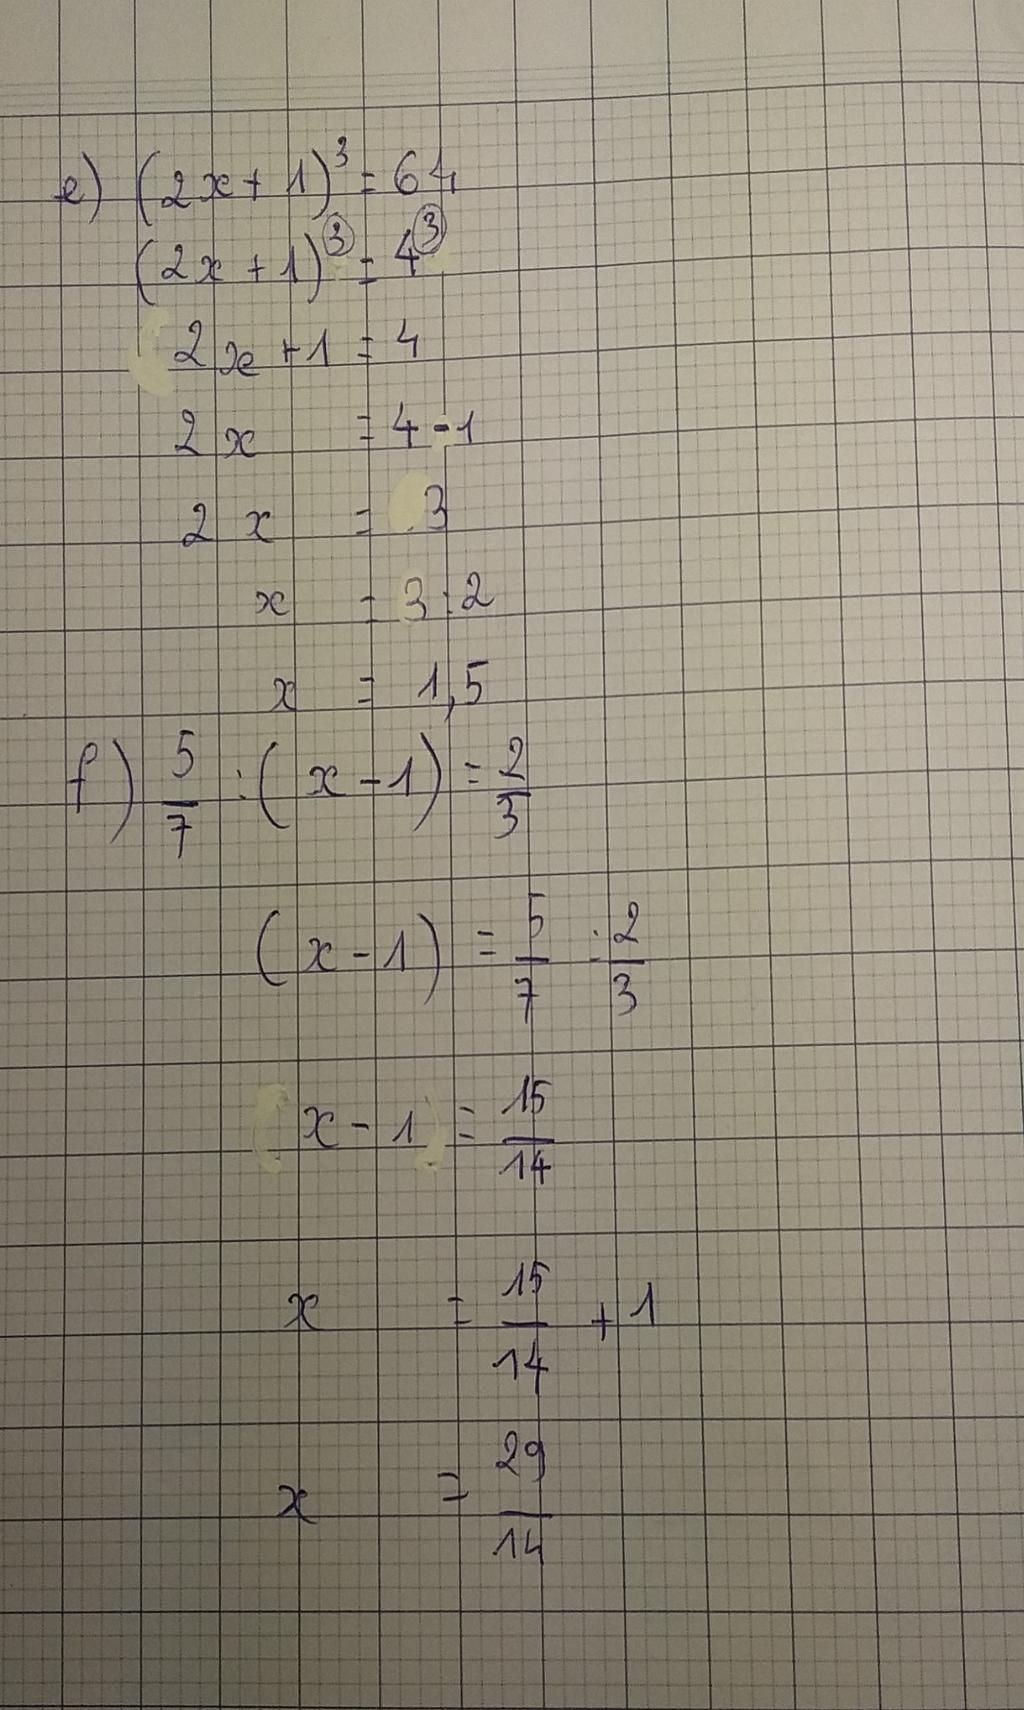 e) (2x + 1)³ = 64
(2x + 1)³ = 4³
2x + 1 = 4
2x = 4 - 1
2x = 3
x = 3 : 2
x = 1,5
f) 5/7 : (x - 1) = 2/3
(x - 1) = 5/7 : 2/3
x - 1 = 15/14
x = 15/14 + 1
x = 29/14